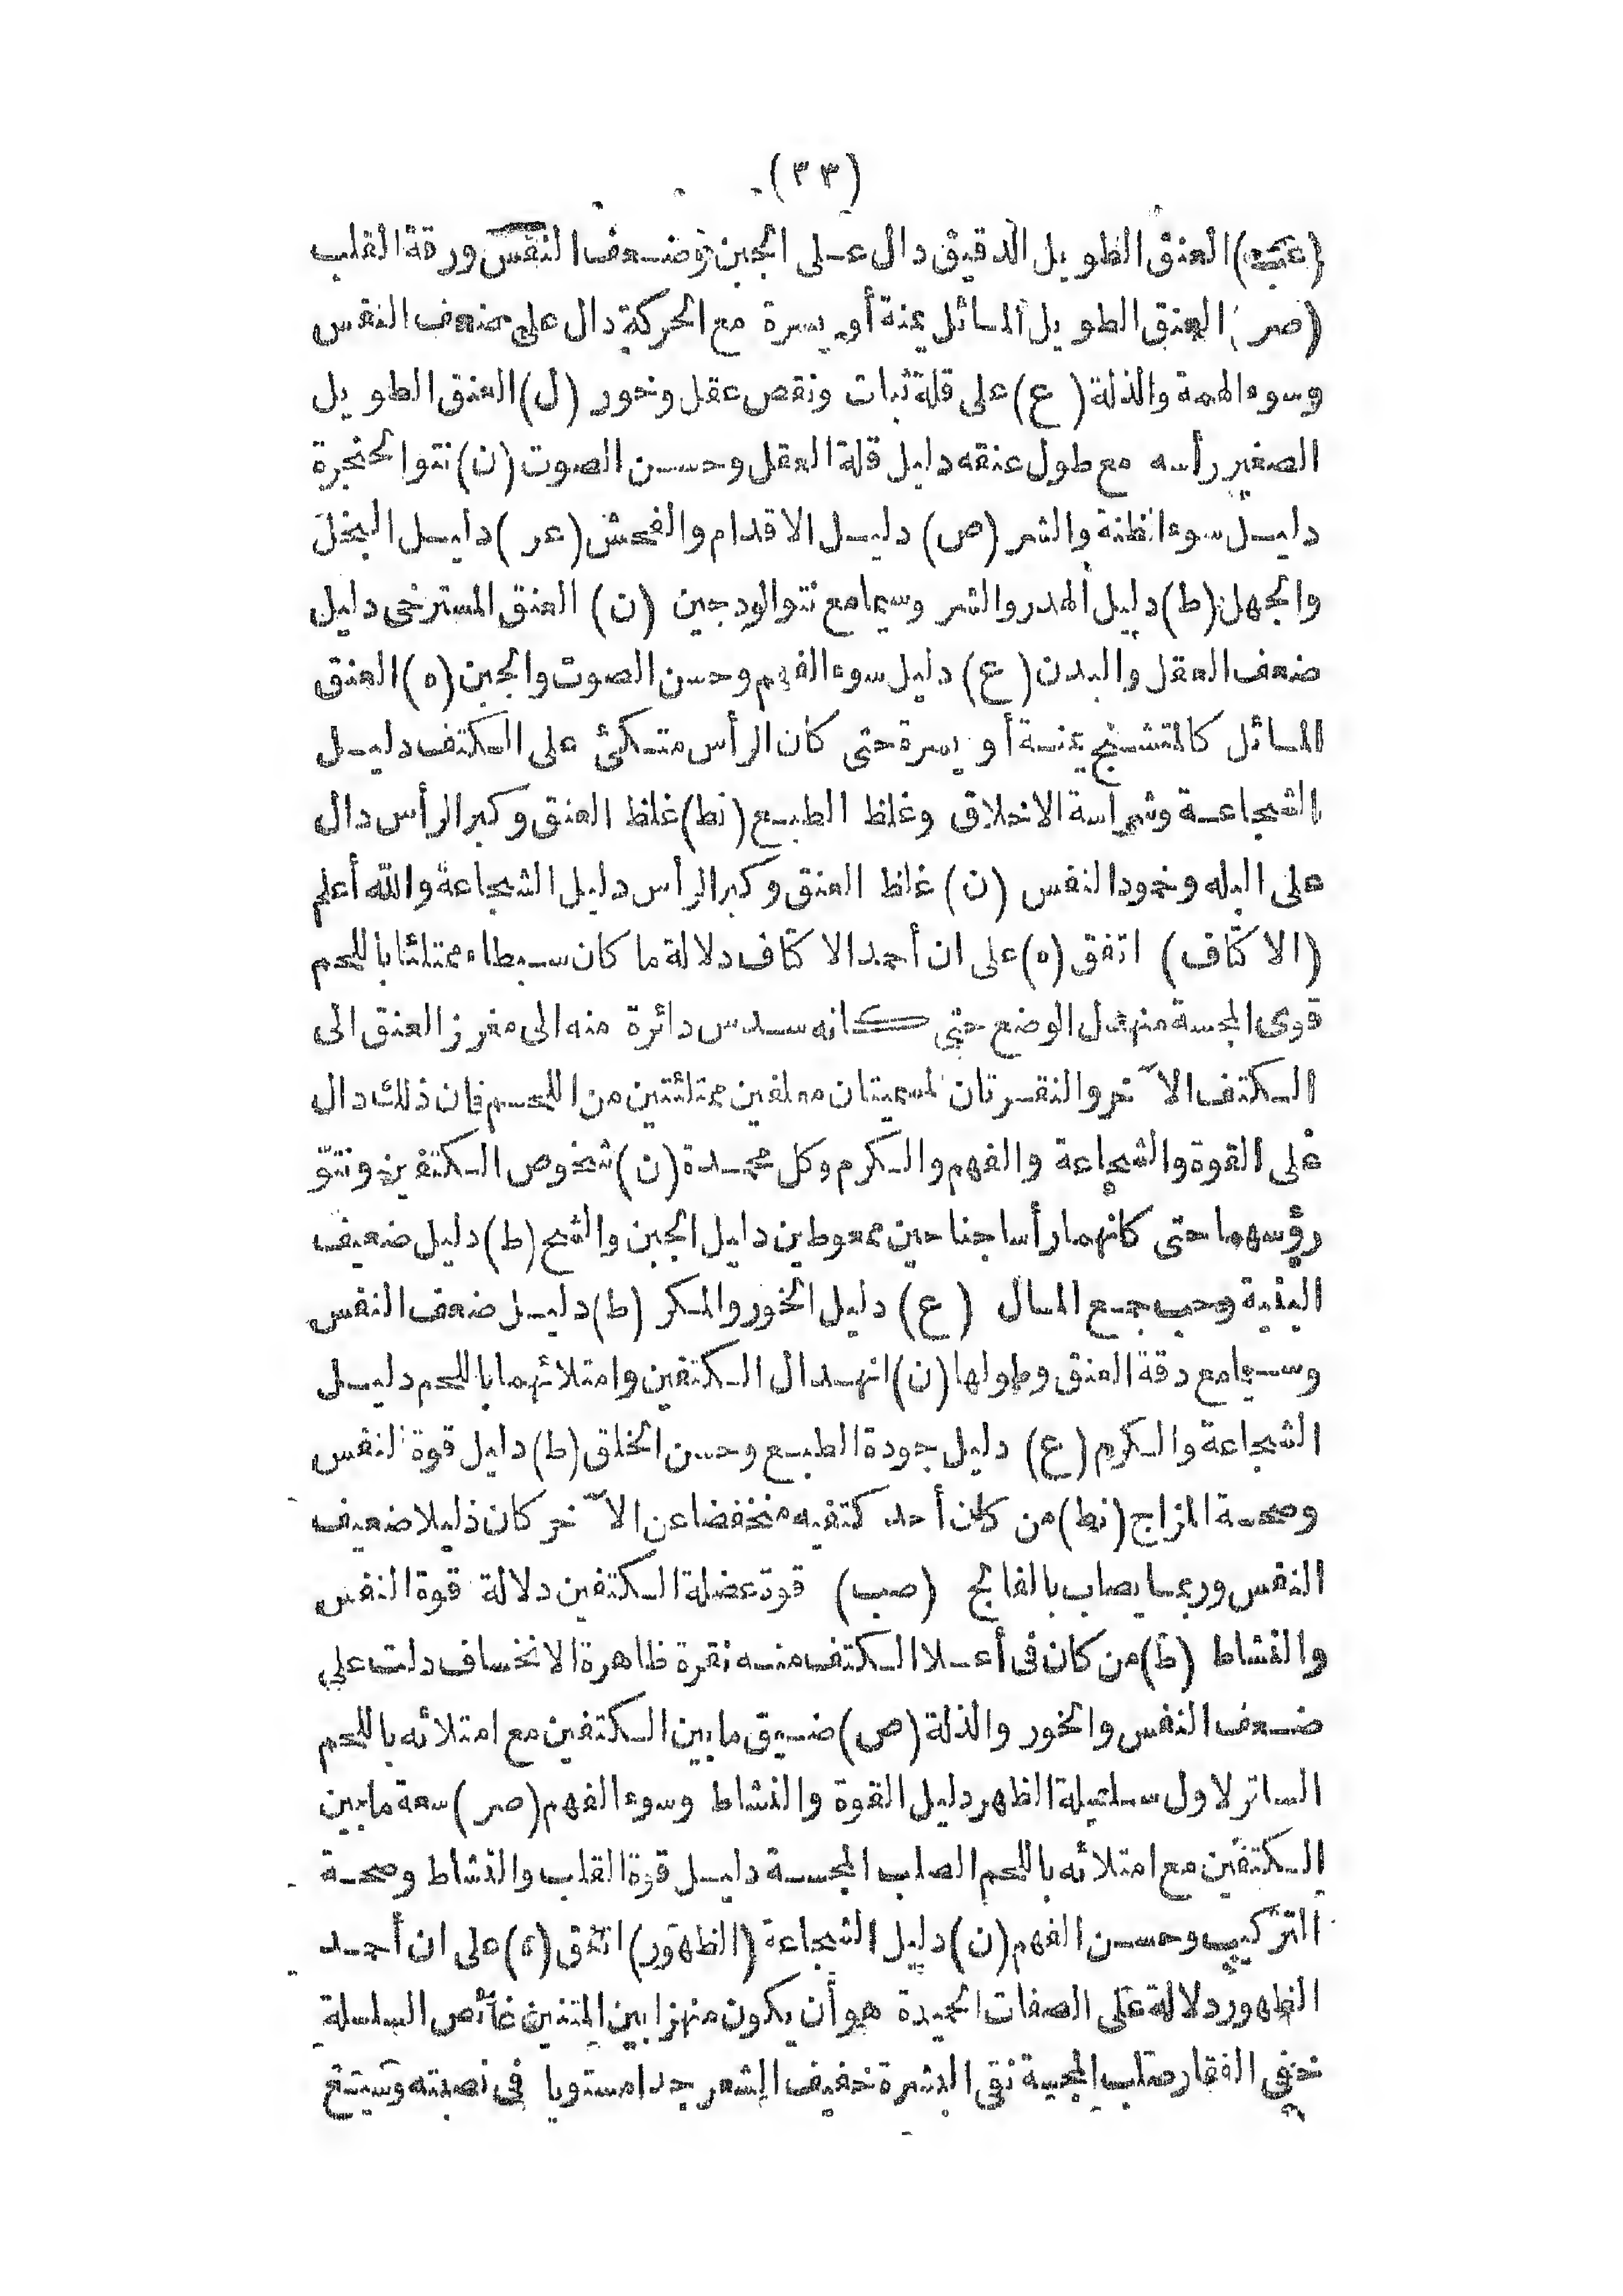 (٣٣)
العنق الطويل الدقيق دال على الجبن وضعف النفس ورقة القلب
(صر) العنق الطويل المائل يمنة أو يسرة مع الحركة دال على ضعف النفس
وسوء الهمة والذلة (ع) على قلة ثبات ونقص عقل وخور (ل) العنق الطويل
الصغير رأسه مع طول عنقه دليل قلة العقل وحسن الصوت (ن) نتوا لحنجرة
دليل سوء الظنة والشر (ص) دليل الاقدام والفحش (عر) دليل البخل
والجهل (ط) دليل الهدر والشر وسيما مع نتو الودجين (ن) العنق المسترخى دليل
ضعف العقل والبدن (ع) دليل سوء الفهم وحسن الصوت والجبن (ه) العنق
المائل كالمتشنج يمنة أو يسرة حتى كان الرأس متكئ على الكتف دليل
الشجاعة وشراسة الاخلاق وغلظ الطبع (نط) غلظ العنق وكبر الرأس دال
على البله وخمود النفس (ن) غلظ العنق وكبر الرأس دليل الشجاعة والله أعلم
(الاكتاف) اتفق (ه) على ان أحمد الاكتاف دلالة ما كان سبطاء ممتلئا باللحم
قوى المجسة منهدل الوضع حتى كانه سدس دائرة منه الى مغرز العنق الى
الكتف الآخر والنقرتان لمسميتان معلفين ممتلئتين من اللحم فان ذلك دال
على القوة والشجاعة والفهم والكرم وكل محمدة (ن) شخوص الكتفين ونتو
رؤسهما حتى كانهما رأسا جناحين ممعوطين دليل الجبن والشح (ط) دليل ضعيف
البنية وحب جمع المال (ع) دليل الخور والمكر (ط) دليل ضعف النفس
وسيما مع دقة العنق وطولها (ن) انهدال الكتفين وامتلائهما باللحم دليل
الشجاعة والكرم (ع) دليل جودة الطبع وحسن الخلق (ط) دليل قوة النفس
وصحة المزاج (نط) من كان أحد كتفيه منخفضا عن الآخر كان ذليلا ضعيف
النفس وربما يصاب بالفالج (صب) قوة عضلة الكتفين دلالة قوة النفس
والنشاط (ط) من كان فى أعلا الكتف منه نقرة ظاهرة الانخساف دلت على
ضعف النفس والخور والذلة (ص) ضيق ما بين الكتفين مع امتلائه باللحم
الساتر لاول سلسلة الظهر دليل القوة والنشاط وسوء الفهم (صر) سعة ما بين
الكتفين مع امتلائه باللحم الصلب المجسة دليل قوة القلب والنشاط وصحة
التركيب وحسن الفهم (ن) دليل الشجاعة (الظهور) اتفق (ه) على ان أحمد
الظهور دلالة على الصفات الحميدة هو أن يكون منهزا بين المتنين غائص السلسلة
خفى الفقار صلب المجسة نقى البشرة خفيف الشعر جدا مستويا فى نصبته